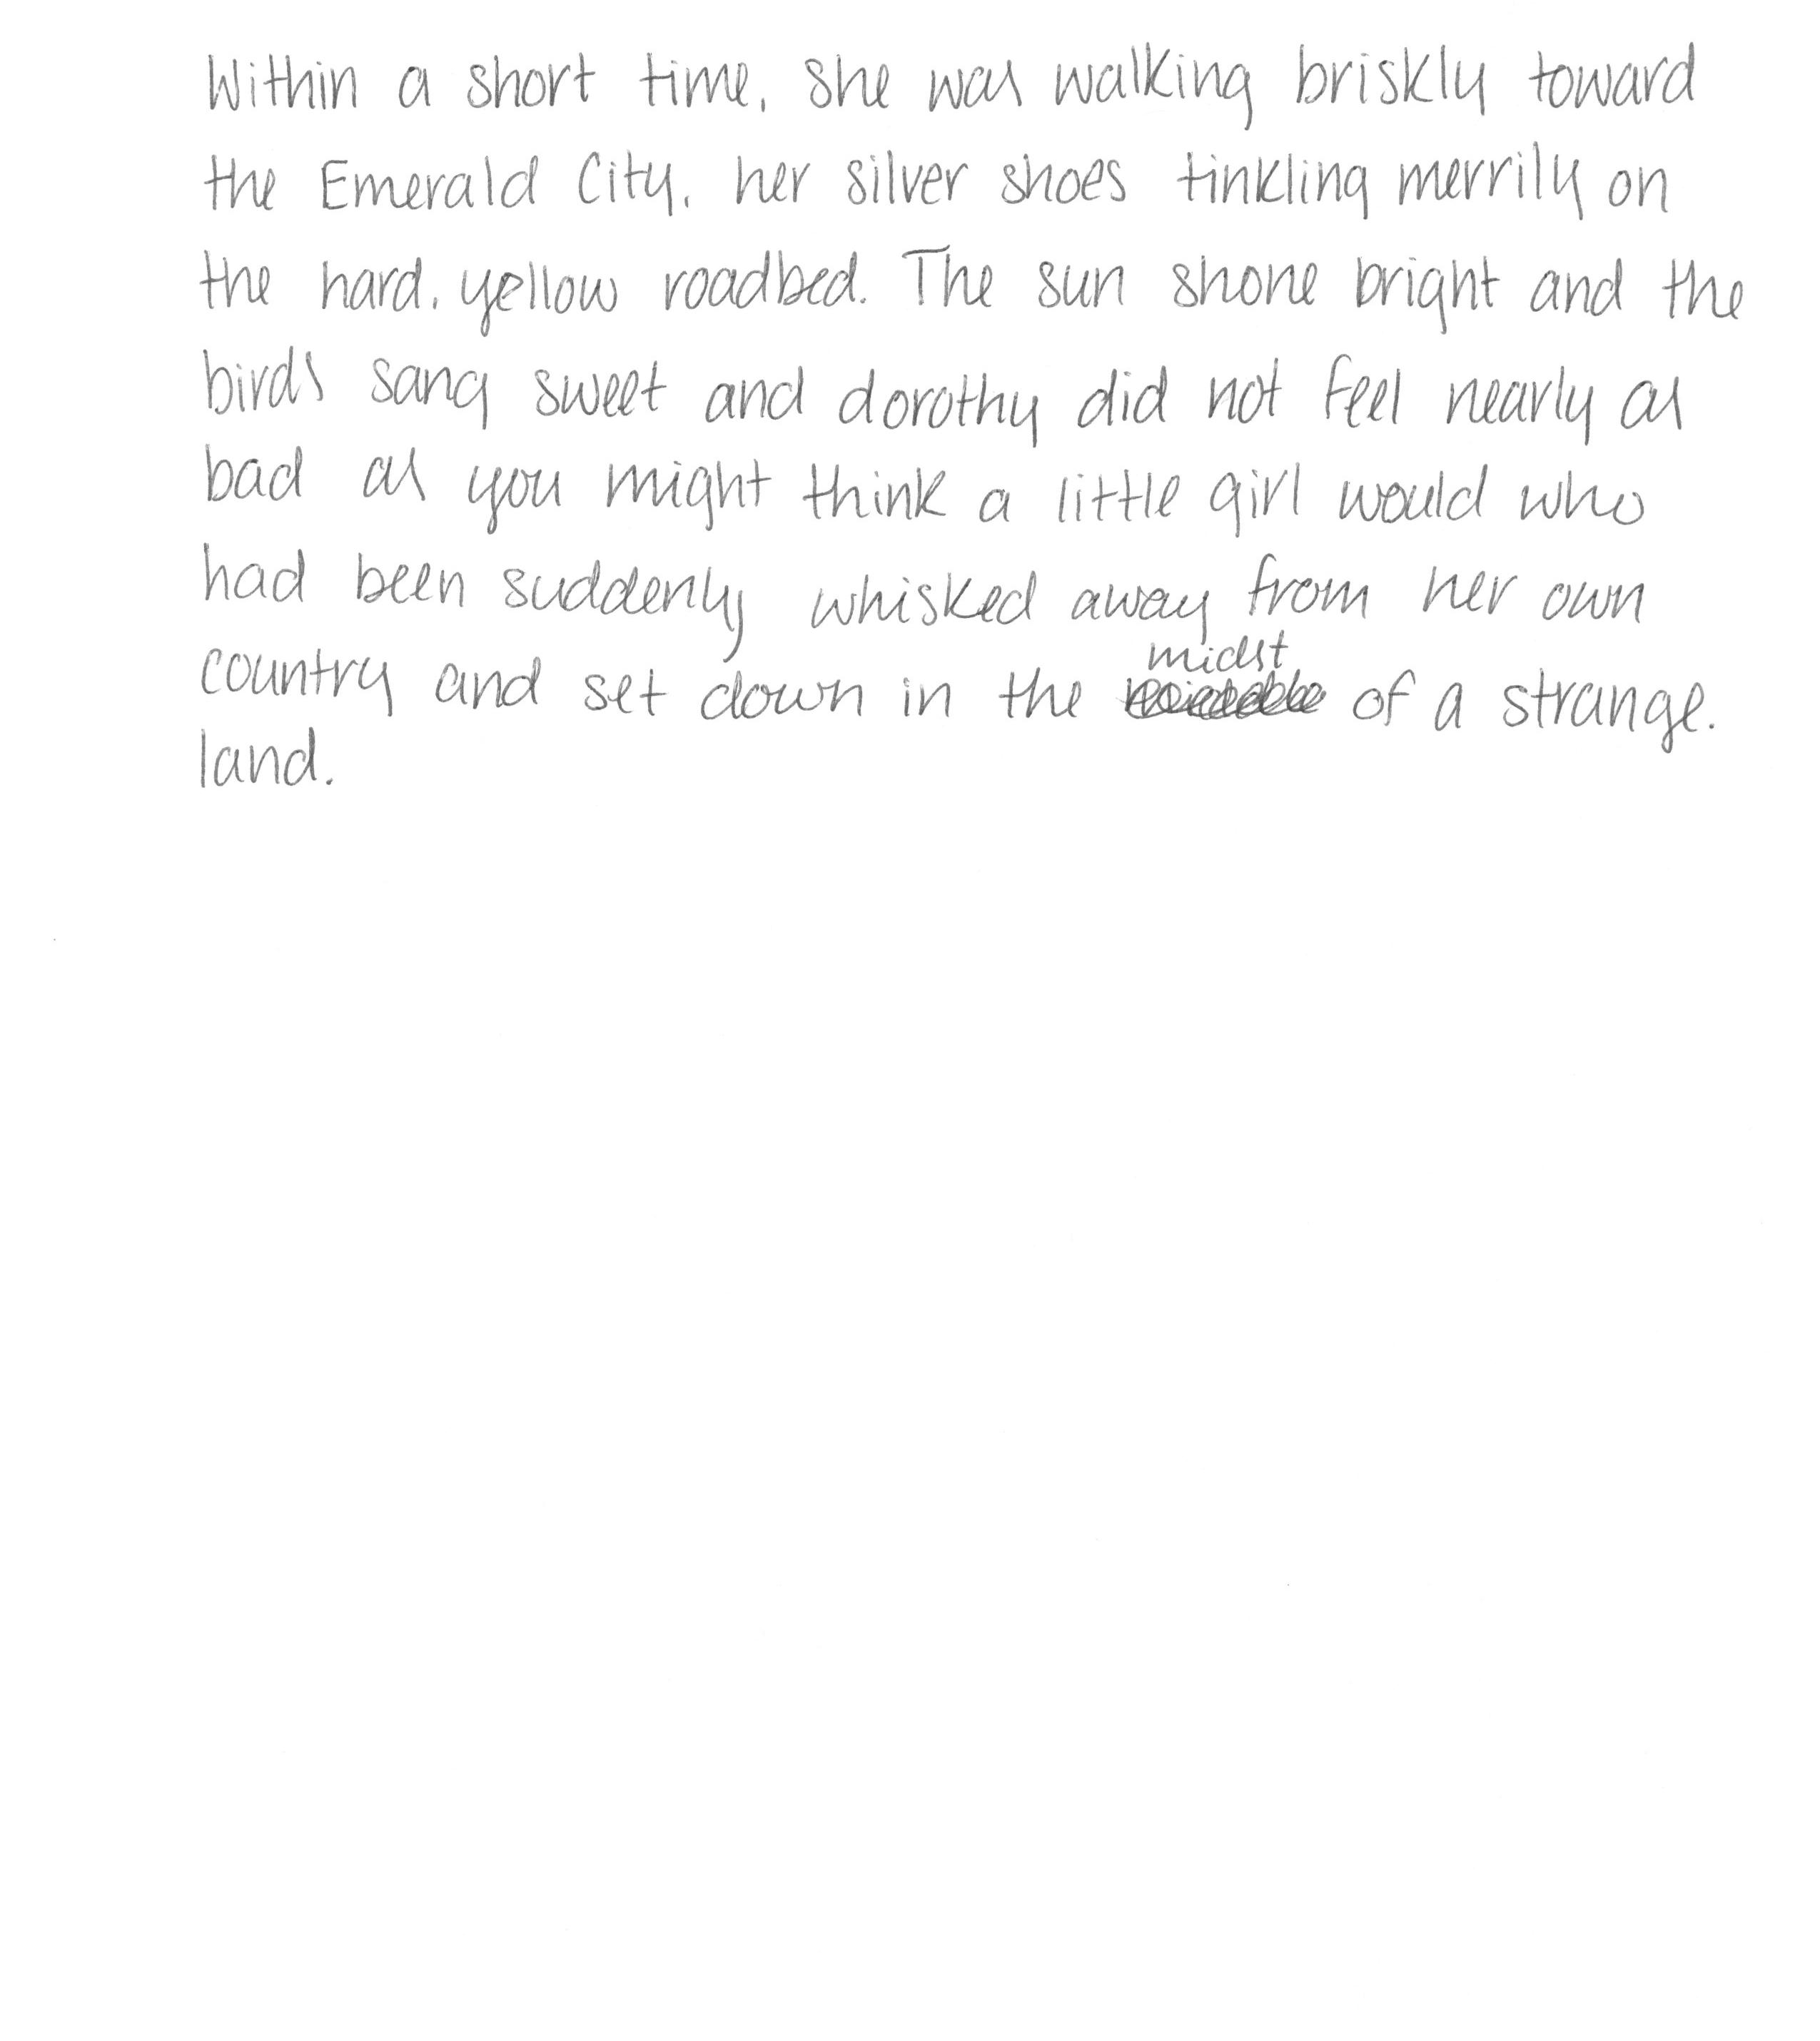 Within a short time, she was walking briskly toward
the Emerald City, her silver shoes tinkling merrily on
the hard, yellow roadbed. The sun shone bright and the
birds sang sweet and dorothy did not feel nearly as
bad as you might think a little girl would who
had been suddenly whisked away from her own
midst
country and set down in the of a strange.
land.